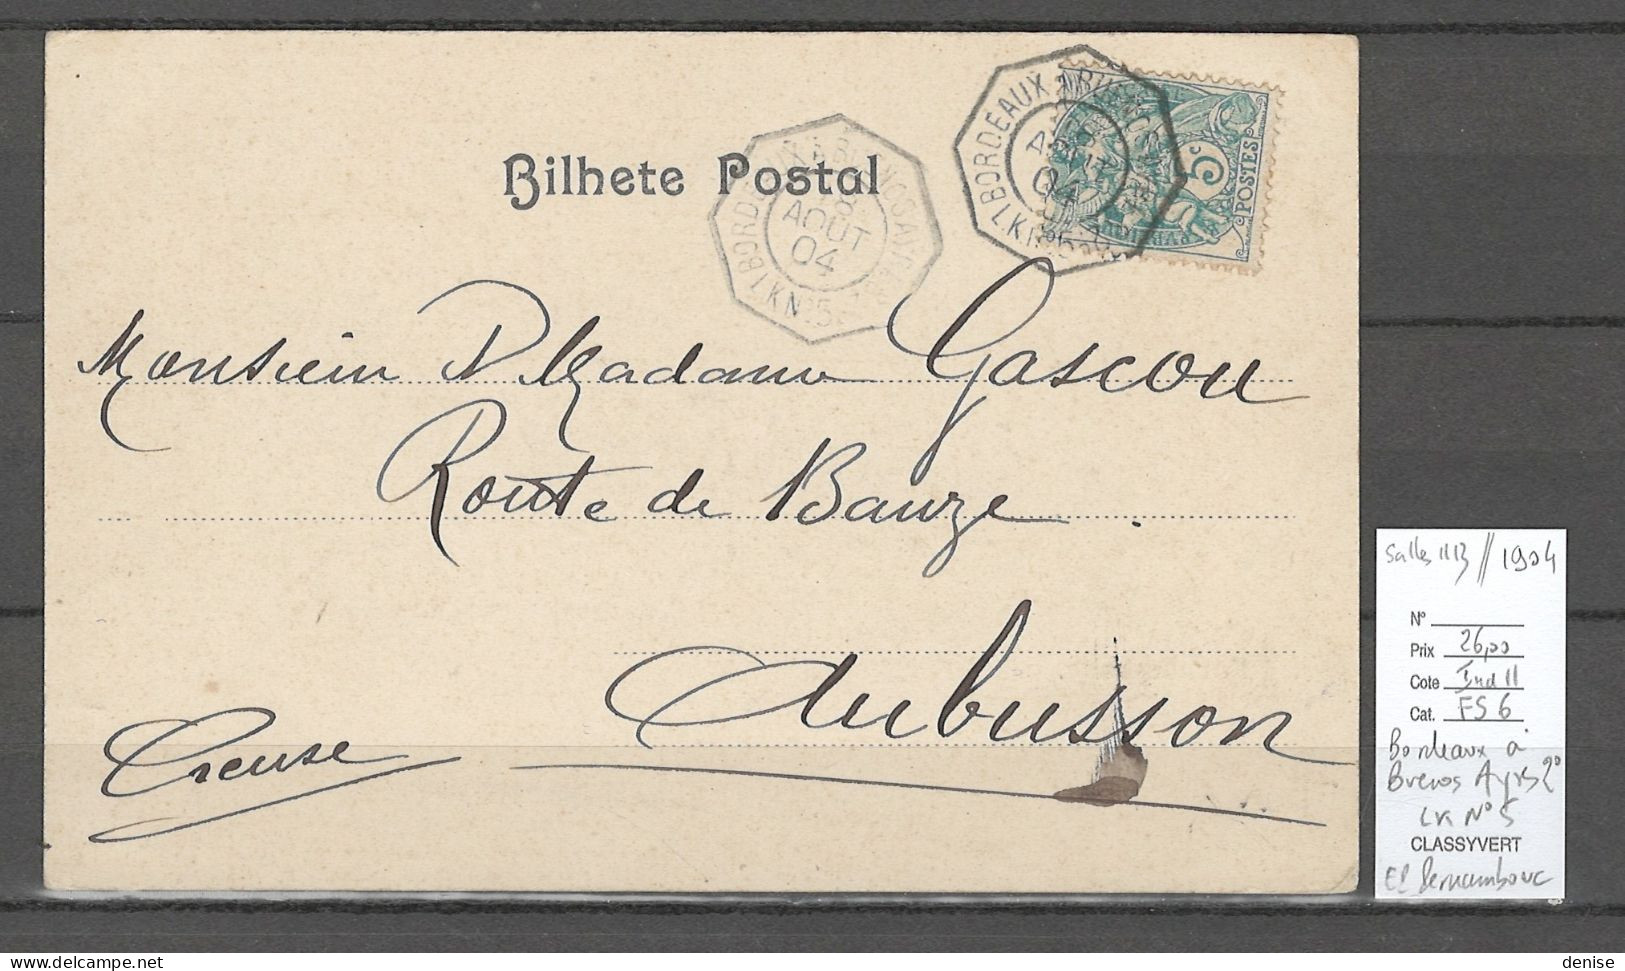 Bilhete Postal
BORDEAUX A BUENOS AYRES
AOUT
04
LK N°5
BORDEAUX A BUENOS AYRES
AOUT
04
LK N°5
5c
POSTES
Monsieur & Madame Gascou
Route de Banze
Aubusson
Creuse
Salles 1113 // 1904
N°
Prix 26,00
Cote Ind 11
Cat. FS 6
Bordeaux à
Buenos Ayres 2°
LK N° 5
CLASSYVERT
Et Pernambouc
delcampe.net
denise